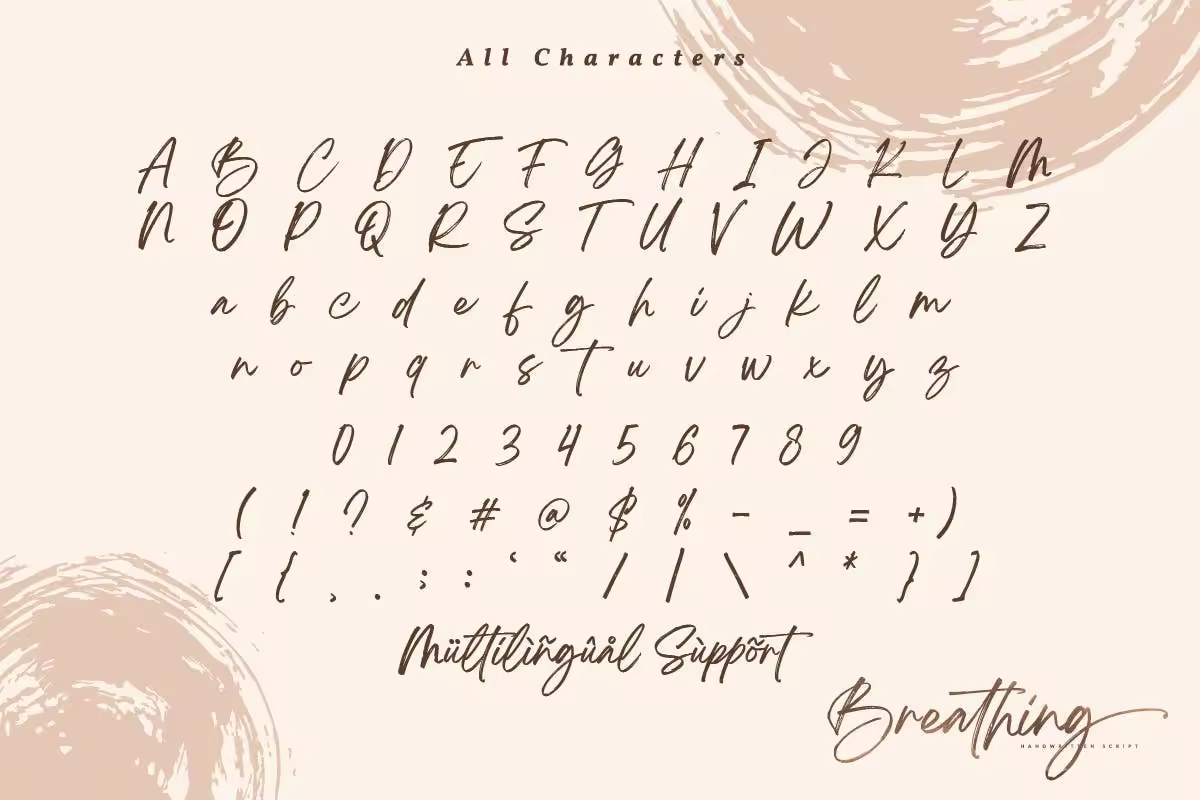 All Characters
A B C D E F G H I J K L M
N O P Q R S T U V W X Y Z
a b c d e f g h i j k l m
n o p q r s t u v w x y z
0 1 2 3 4 5 6 7 8 9
( ! ? & # @ $ % - _ = + )
[ { , . ; : ‘ “ / | \ ^ * } ]
Mültílìñgûål Sùppõrt
Breathing
HANDWRITTEN SCRIPT